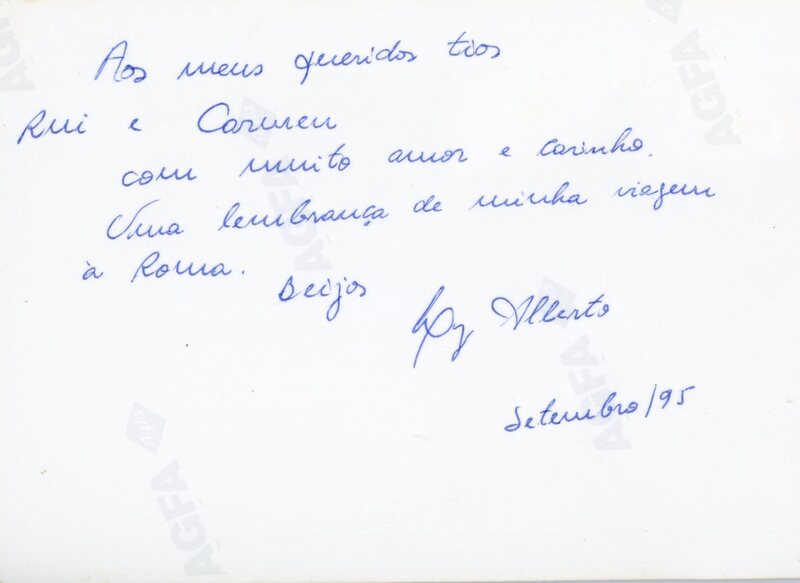 Aos meus queridos tios
Rui e Carmen
com muito amor e carinho.
Uma lembrança de minha viagem
à Roma.
Beijos
Alberto
Setembro/95
AGFA
AGFA
AGFA
AGFA
AGFA